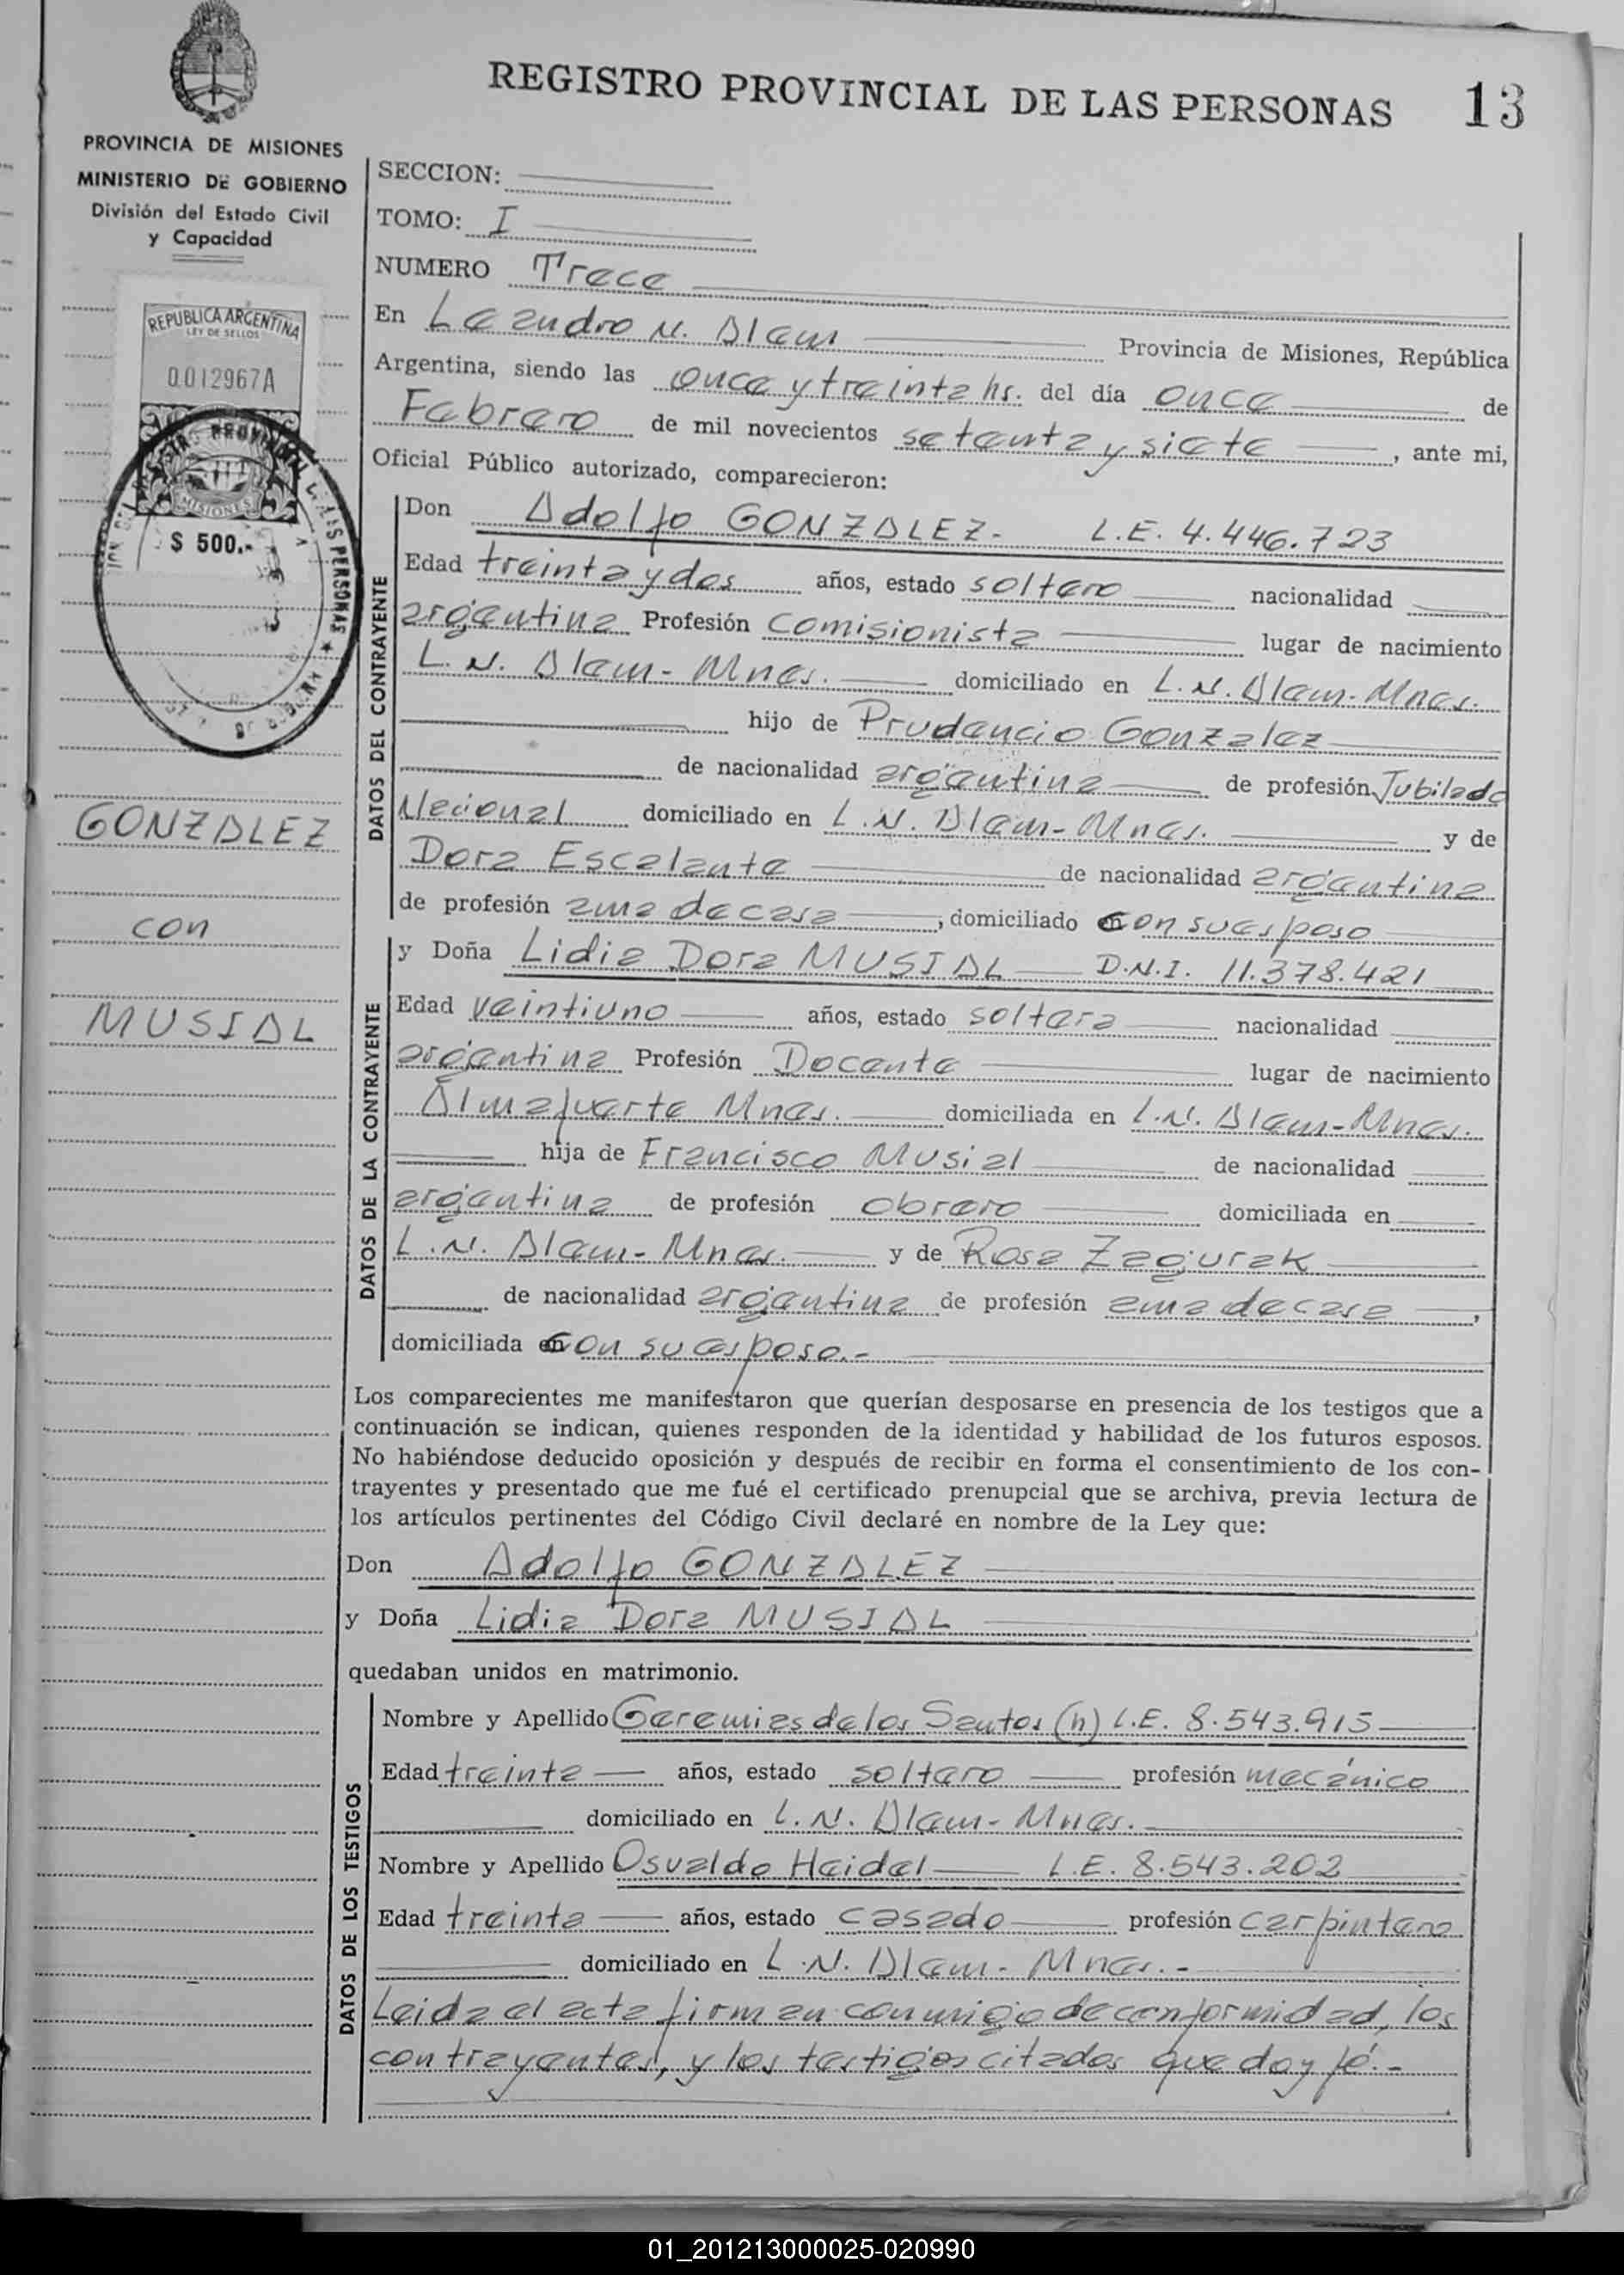 REGISTRO PROVINCIAL DE LAS PERSONAS 13
PROVINCIA DE MISIONES
MINISTERIO DE GOBIERNO
División del Estado Civil
y Capacidad
REPUBLICA ARGENTINA
LEY DE SELLOS
0.012967A
MISIONES
$ 500.-
GONZALEZ
con
MUSIAL
SECCION:
TOMO: I
NUMERO Trece
En Leandro N. Alem Provincia de Misiones, República
Argentina, siendo las once y treinta hs. del día once de
Febrero de mil novecientos setenta y siete, ante mi,
Oficial Público autorizado, comparecieron:
DATOS DEL CONTRAYENTE
Don Adolfo GONZALEZ.- L.E. 4.446.723
Edad treinta y dos años, estado soltero nacionalidad
argentina Profesión Comisionista lugar de nacimiento
L. N. Alem - Mnes. domiciliado en L.N. Alem - Mnes.
hijo de Prudencio Gonzalez
de nacionalidad argentina de profesión Jubilado
Nacional domiciliado en L.N. Alem - Mnes. y de
Dora Escalante de nacionalidad argentina
de profesión ama de casa, domiciliado con su esposo
DATOS DE LA CONTRAYENTE
y Doña Lidia Dora MUSIAL D.N.I. 11.378.421
Edad veintiuno años, estado soltera nacionalidad
argentina Profesión Docente lugar de nacimiento
Almafuerte Mnes. domiciliada en L.N. Alem - Mnes.
hija de Francisco Musial de nacionalidad
argentina de profesión obrero domiciliada en
L.N. Alem - Mnes. y de Rosa Zagurak
de nacionalidad argentina de profesión ama de casa,
domiciliada con su esposo.-
Los comparecientes me manifestaron que querían desposarse en presencia de los testigos que a
continuación se indican, quienes responden de la identidad y habilidad de los futuros esposos.
No habiéndose deducido oposición y después de recibir en forma el consentimiento de los con-
trayentes y presentado que me fué el certificado prenupcial que se archiva, previa lectura de
los artículos pertinentes del Código Civil declaré en nombre de la Ley que:
Don Adolfo GONZALEZ
y Doña Lidia Dora MUSIAL
quedaban unidos en matrimonio.
DATOS DE LOS TESTIGOS
Nombre y Apellido Geremias de los Santos (h) L.E. 8.543.915
Edad treinta años, estado soltero profesión mecánico
domiciliado en L.N. Alem - Mnes.
Nombre y Apellido Osvaldo Heidel L.E. 8.543.202
Edad treinta años, estado casado profesión carpintero
domiciliado en L.N. Alem - Mnes.-
Leida el acta firman conmigo de conformidad, los
contrayentes, y los testigos citados que doy fé.-
01_201213000025-020990